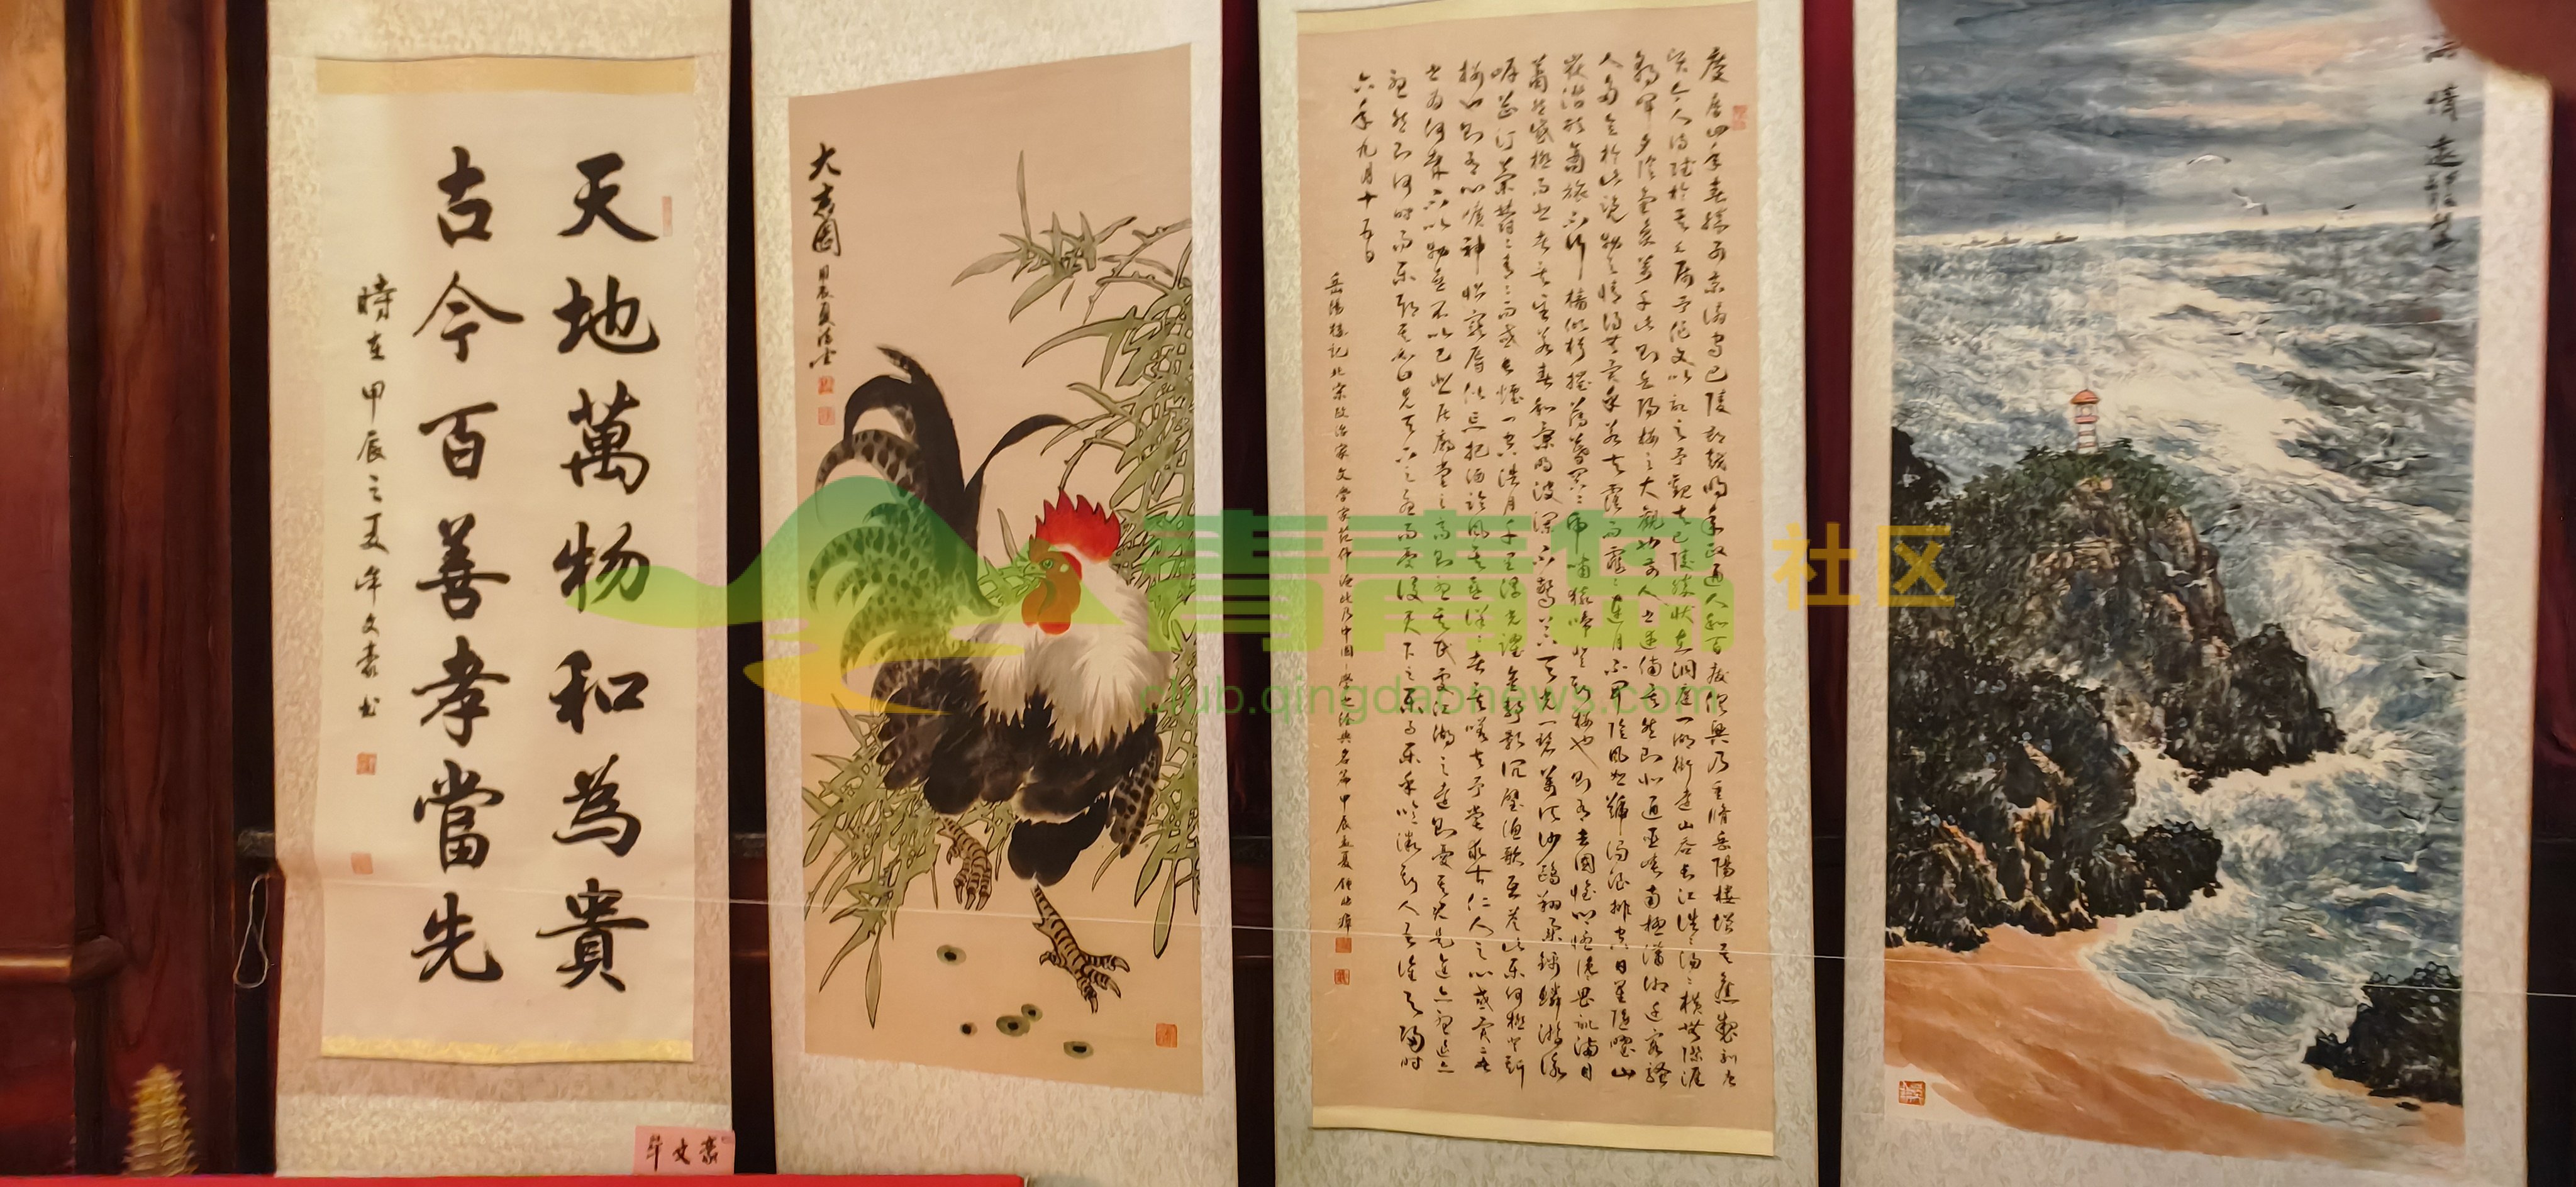 天地萬物和為貴
古今百善孝當先
時在甲辰之夏牟文豪书
牟文豪
大吉圖
慶曆四年春滕子京謫守巴陵郡越明年政通人和百廢俱興乃重修岳陽樓增其舊製刻唐
賢今人詩賦於其上屬予作文以記之予觀夫巴陵勝狀在洞庭一湖銜遠山吞長江浩浩湯湯橫無際涯
朝暉夕陰氣象萬千此則岳陽樓之大觀也前人之述備矣然則北通巫峽南極瀟湘遷客騷
人多會於此覽物之情得無異乎若夫霪雨霏霏連月不開陰風怒號濁浪排空日星隱曜山
嶽潛形商旅不行檣傾楫摧薄暮冥冥虎嘯猿啼登斯樓也則有去國懷鄉憂讒畏譏滿目
蕭然感極而悲者矣至若春和景明波瀾不驚上下天光一碧萬頃沙鷗翔集錦鱗游泳
岸芷汀蘭郁郁青青而或長煙一空皓月千里浮光躍金靜影沉璧漁歌互答此樂何極登斯
樓也則有心曠神怡寵辱偕忘把酒臨風其喜洋洋者矣嗟夫予嘗求古仁人之心或異二者
之為何哉不以物喜不以己悲居廟堂之高則憂其民處江湖之遠則憂其君是進亦憂退亦
憂然則何時而樂耶其必曰先天下之憂而憂後天下之樂而樂乎噫微斯人吾誰與歸時
六年九月十五日
岳陽樓記北宋政治家文學家范仲淹
青青岛社区
club.qingdaonews.com